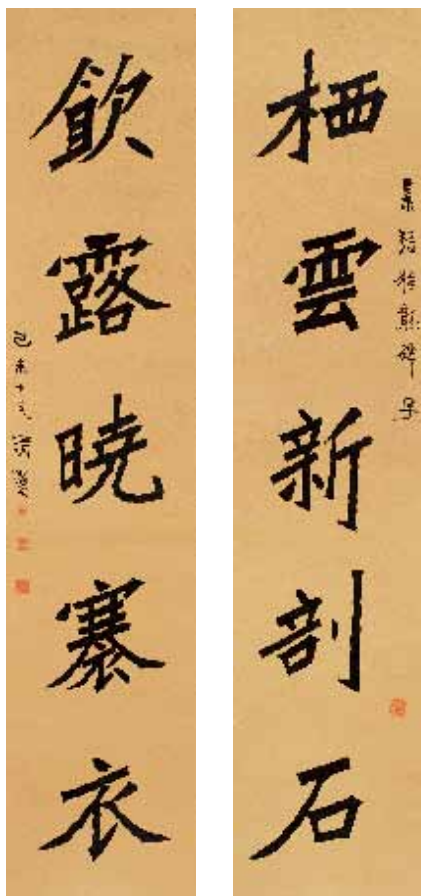 栖雲新剖石
飲露曉褰衣